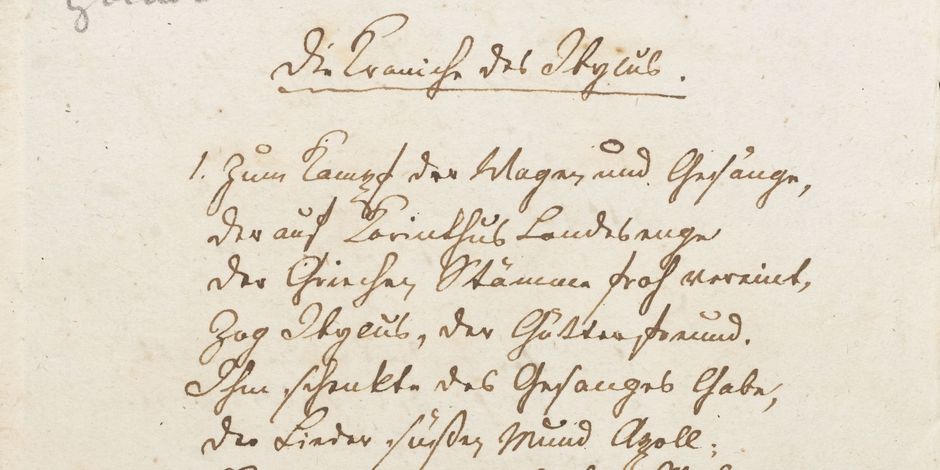 Die Kraniche des Ibycus.
1. Zum Kampf der Wagen und Gesänge,
der auf Korinthus Landesenge
der Griechen Stämme froh vereint,
Zog Ibycus, der Götterfreund.
Ihm schenkte des Gesanges Gabe,
der Lieder süßen Mund Apoll;